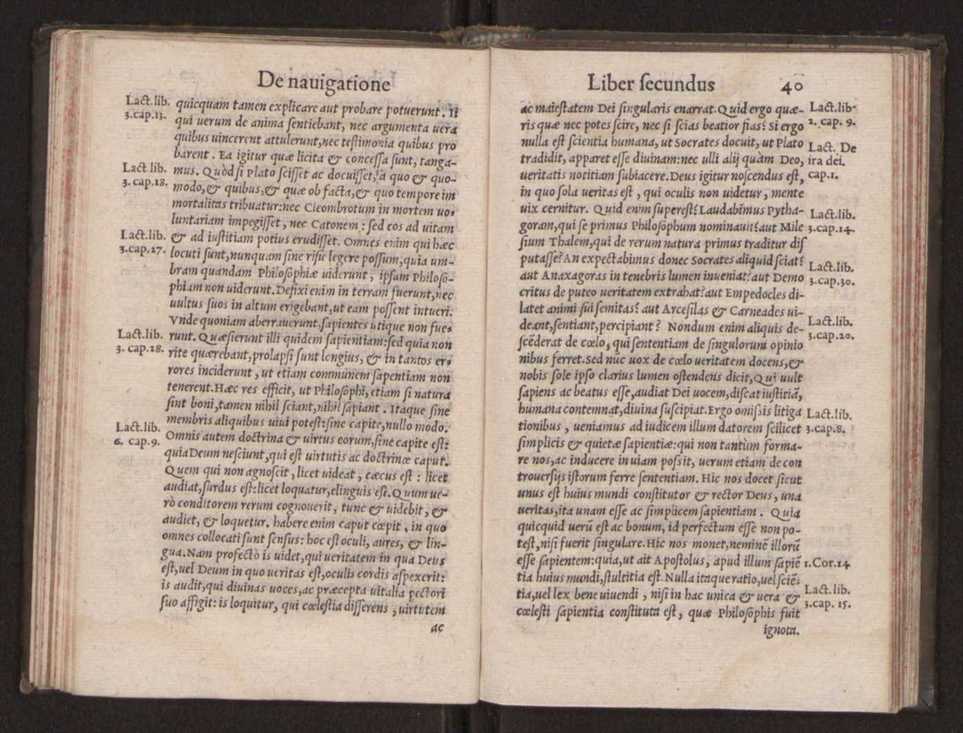 De nauigatione
Lact. lib. 3.cap.13.
quicquam tamen explicare aut probare potuerunt. Ii
qui uerum de anima sentiebant, nec argumenta uera
quibus uincerent attulerunt, nec testimonia quibus pro
barent. Ea igitur quæ licita & concessa sunt, tanga-
Lact lib. 3. cap.18.
mus. Quòd si Plato scisset ac docuisset, à quo & quo-
modo, & quibus, & quæ ob facta, & quo tempore im
mortalitas tribuatur: nec Cleombrotum in mortem uo-
luntariam impegisset, nec Catonem: sed eos ad uitam
Lact.lib. 3.cap.27.
& ad iustitiam potius erudisset. Omnes enim qui hæc
locuti sunt, nunquam sine risu legere possum, quia um-
bram quandam Philosophiæ uiderunt, ipsam Philoso-
phiam non uiderunt. Defixi enim in terram fuerunt, nec
uultus suos in altum erigebant, ut eam possent intueri.
Vnde quoniam aberrauerunt, sapientes utique non fue-
Lact.lib. 3. cap.28.
runt. Quæsierunt illi quidem sapientiam: sed quia non
rite quærebant, prolapsi sunt longius, & in tantos er-
rores inciderunt, ut etiam communem sapentiam non
tenerent. Hæc res efficit, ut Philosophi, etiam si natura
sint boni, tamen nihil sciant, nihil sapiant. Itaque sine
membris aliquibus uiui potest: sine capite, nullo modo.
Lact.lib. 6. cap.9.
Omnis autem doctrina & uirtus eorum, sine capite est:
quia Deum nesciunt, qui est uirtutis ac doctrinæ caput.
Quem qui non agnoscit, licet uideat, cæcus est: licet
audiat, surdus est: licet loquatur, elinguis est. Quum ue-
rò conditorem rerum cognouerit, tunc & uidebit, &
audiet, & loquetur. habere enim caput cœpit, in quo
omnes collocati sunt sensus: hoc est oculi, aures, & lin-
gua. Nam profectò is uidet, qui ueritatem in qua Deus
est, uel Deum in quo ueritas est, oculis cordis aspexerit:
is audit, qui diuinas uoces, ac præcepta uitalia pectori
suo affigit: is loquitur, qui cœlestia disserens, uirtutem
ac
Liber secundus 40
ac maiestatem Dei singularis enarrat. Quid ergo quæ-
Lact.lib. 2. cap. 9.
ris quæ nec potes scire, nec si scias beatior fias? Si ergo
nulla est scientia humana, ut Socrates docuit, ut Plato
Lact. De ira dei. cap.1.
tradidit, apparet esse diuinam: nec ulli alij quàm Deo,
ueritatis notitiam subiacere. Deus igitur noscendus est,
in quo sola ueritas est, qui oculis non uidetur, mente
uix cernitur. Quid enim superest? Laudabimus Pytha-
Lact.lib. 3.cap.14.
goram, qui se primus Philosophum nominauit? aut Mile
sium Thalem, qui de rerum natura primus traditur dis
putasse? An expectabimus donec Socrates aliquid sciat?
Lact.lib. 3.cap.30.
aut Anaxagoras in tenebris lumen inueniat? aut Demo
critus de puteo ueritatem extrahat? aut Empedocles di-
latet animi sui semitas? aut Arcesilas & Carneades ui-
Lact.lib. 3.cap.20.
deant, sentiant, percipiant? Nondum enim aliquis de-
scēderat de cœlo, qui sententiam de singulorum opinio
nibus ferret. Sed nūc uox de cœlo ueritatem docens, &
nobis sole ipso clarius lumen ostendens dicit, Qui uult
sapiens ac beatus esse, audiat Dei uocem, discat iustitiā,
humana contemnat, diuina suscipiat. Ergo omissis litiga
Lact.lib. 3.cap.8.
tionibus, ueniamus ad iudicem illum datorem scilicet
simplicis & quietæ sapientiæ: qui non tantùm forma-
re nos, ac inducere in uiam possit, uerum etiam de con
trouersijs istorum ferre sententiam. Hic nos docet sicut
unus est huius mundi constitutor & rector Deus, una
ueritas, ita unam esse ac simplicem sapientiam. Quia
quicquid uerū est ac bonum, id perfectum esse non po-
test, nisi fuerit singulare. Hic nos monet, neminē illorū
esse sapientem: quia, ut ait Apostolus, apud illum sapiē
1.Cor.14
tia huius mundi, stultitia est. Nulla itaque ratio, uel sciē-
Lact.lib. 3.cap. 15.
tia, uel lex bene uiuendi, nisi in hac unica & uera &
cœlesti sapientia constituta est, quæ Philosophis fuit
ignota.